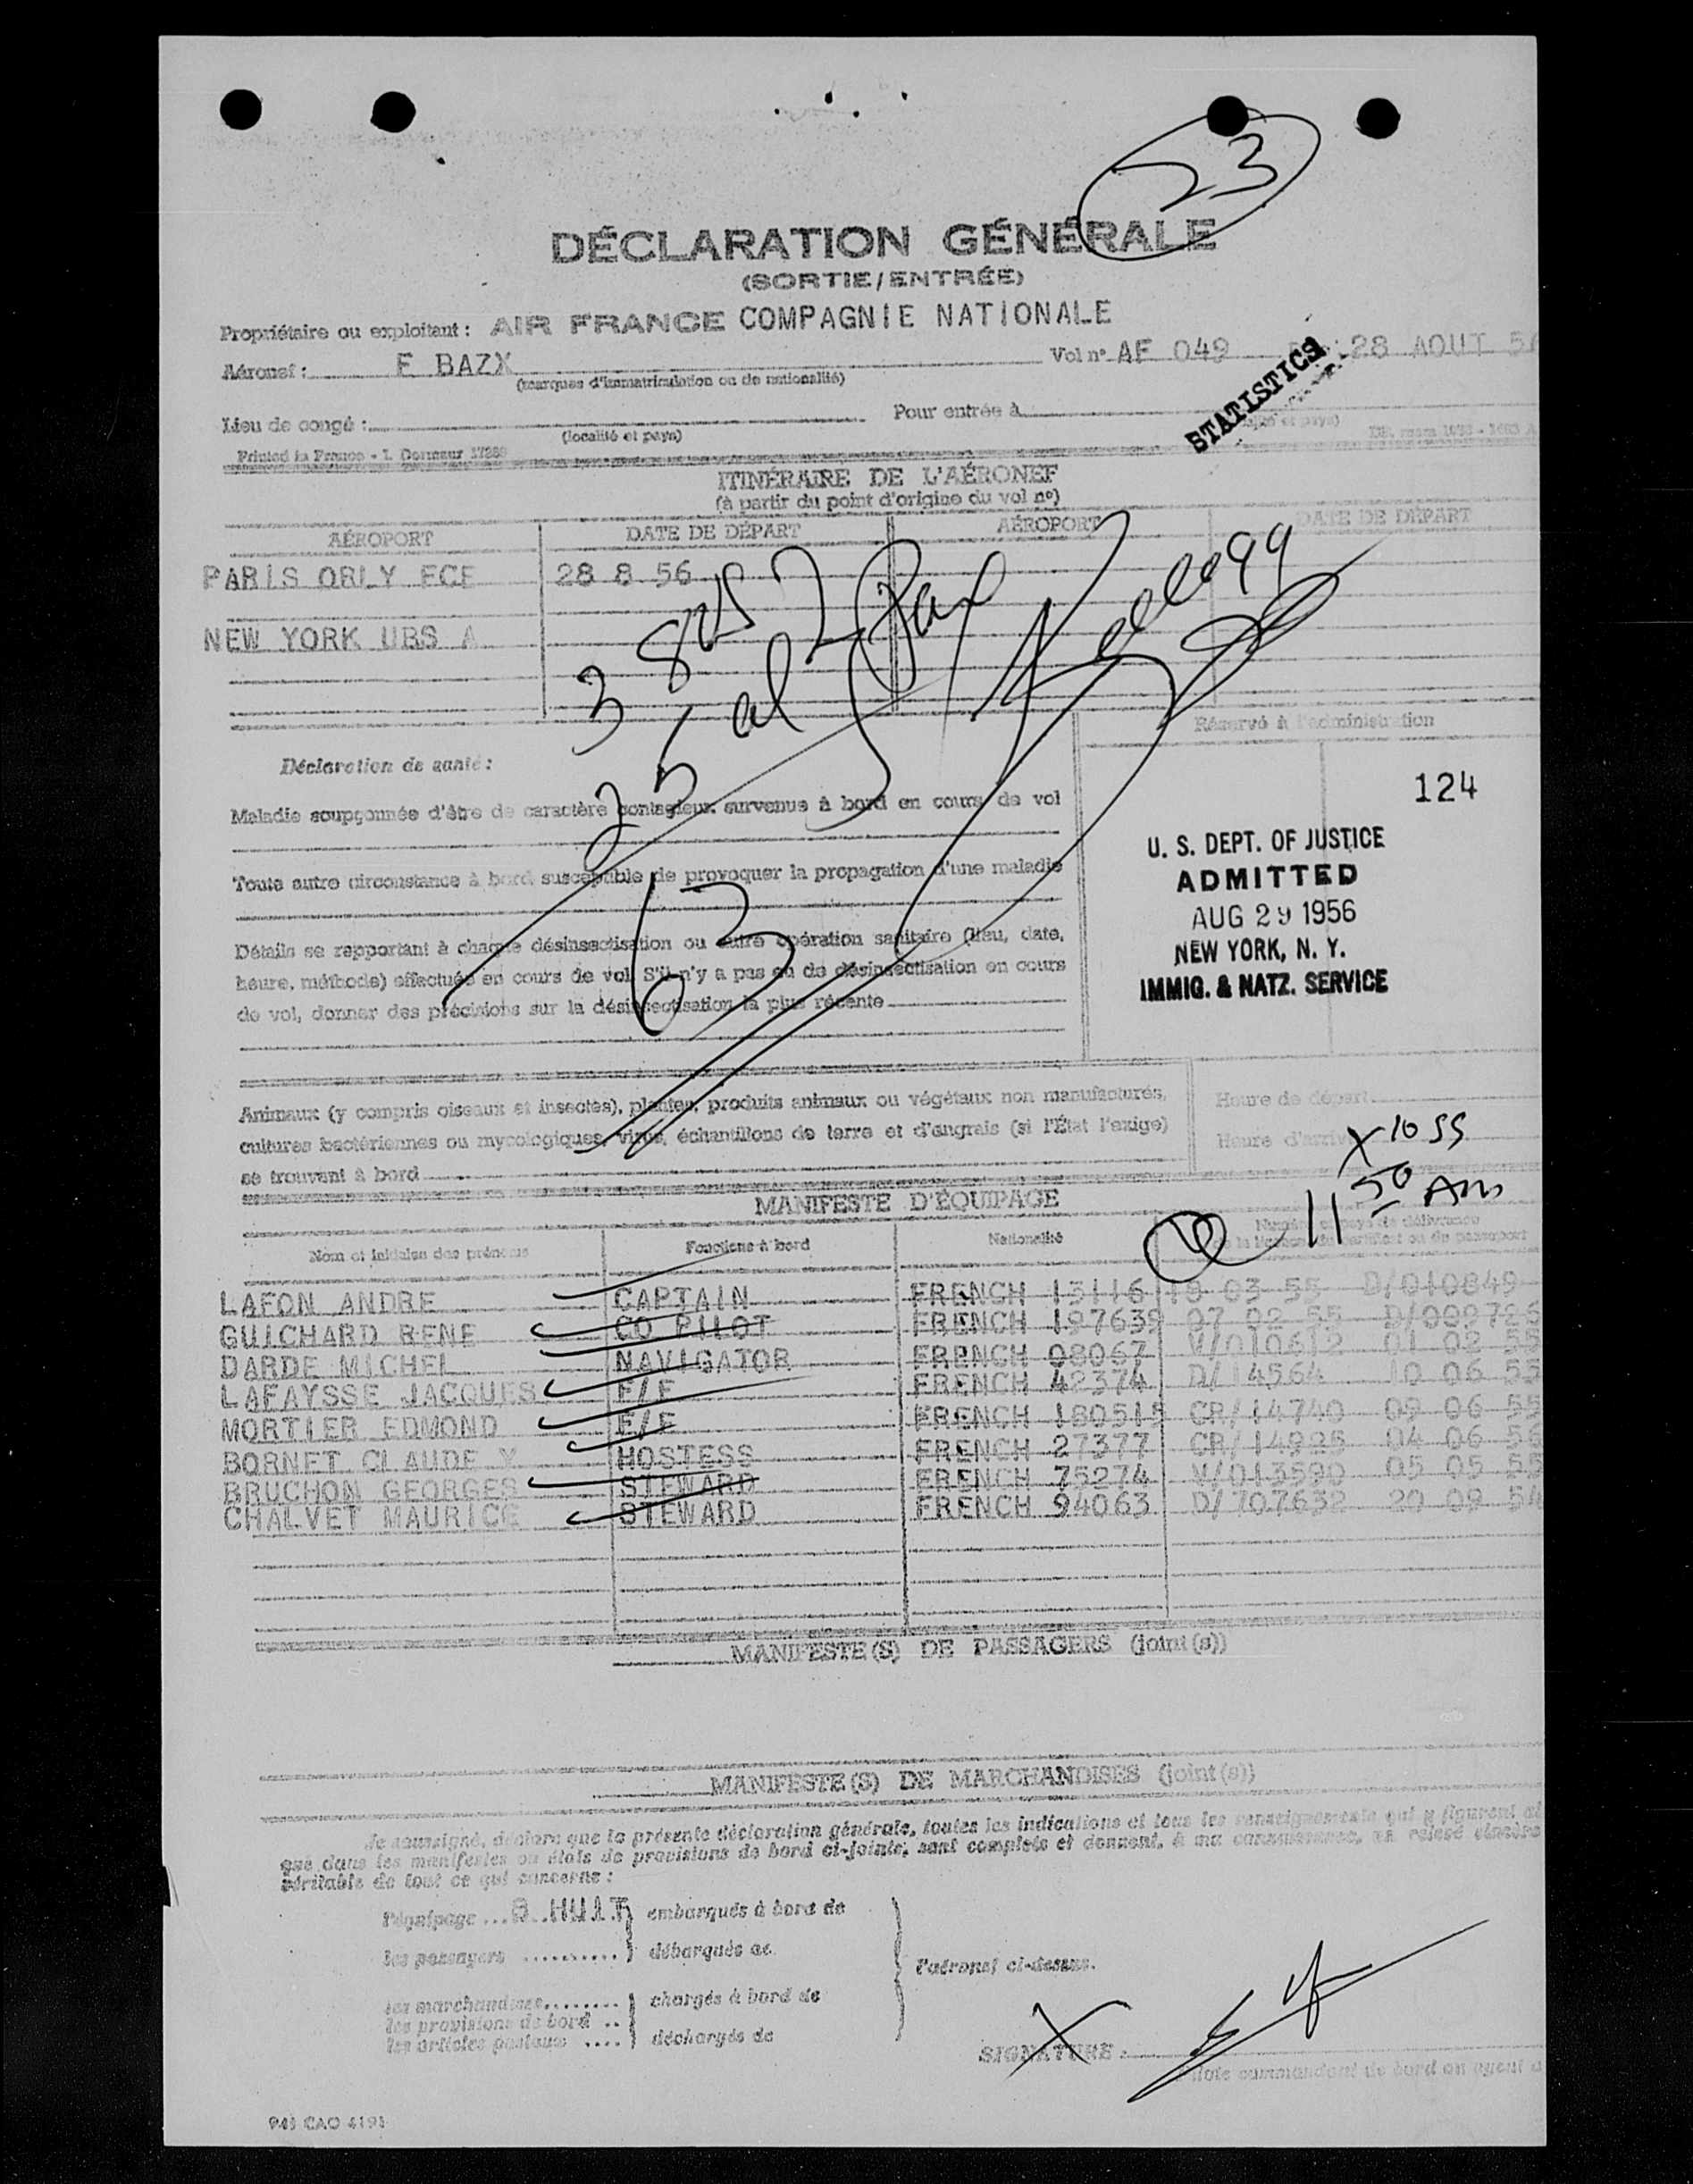 23
DÉCLARATION GÉNÉRALE
(SORTIE/ENTRÉE)
Propriétaire ou exploitant : AIR FRANCE COMPAGNIE NATIONALE
Aéronef : F BAZX Vol nº AF 049 28 AOUT 5
(marques d'immatriculation ou de nationalité)
STATISTICS
Lieu de congé : Pour entrée à
(localité et pays)
Printed in France - L. Dormeur
ITINÉRAIRE DE L'AÉRONEF
(à partir du point d'origine du vol nº)
AÉROPORT DATE DE DÉPART AÉROPORT DATE DE DÉPART
PARIS ORLY FCE 28 8 56
NEW YORK UBS A
Réservé à l'administration
Déclaration de santé :
124
Maladie soupçonnée d'être de caractère contagieux survenue à bord en cours de vol
U. S. DEPT. OF JUSTICE
ADMITTED
AUG 29 1956
NEW YORK, N. Y.
IMMIG. & NATZ. SERVICE
Toute autre circonstance à bord susceptible de provoquer la propagation d'une maladie
Détails se rapportant à chaque désinsectisation ou autre opération sanitaire (lieu, date,
heure, méthode) effectuée en cours de vol. S'il n'y a pas eu de désinsectisation en cours
de vol, donner des précisions sur la désinsectisation la plus récente
Animaux (y compris oiseaux et insectes), plantes, produits animaux ou végétaux non manufacturés,
cultures bactériennes ou mycologiques, virus, échantillons de terre et d'engrais (si l'État l'exige)
se trouvant à bord
Heure de départ
Heure d'arrivée X 10 55
11 50 Am
MANIFESTE D'ÉQUIPAGE
Nom et initiales des prénoms Fonctions à bord Nationalité
LAFON ANDRE CAPTAIN FRENCH 13116 18 03 55 D/010849
GUICHARD RENE CO PILOT FRENCH 197639 07 02 55 D/009726
DARDE MICHEL NAVIGATOR FRENCH 08067 V/010612 01 02 55
LAFAYSSE JACQUES F/E FRENCH 42374 D/14564 10 06 55
MORTIER EDMOND F/E FRENCH 180515 CR/14740 09 06 55
BORNET CLAUDE Y HOSTESS FRENCH 27377 CR/14925 04 06 56
BRUCHON GEORGES STEWARD FRENCH 75274 V/013590 05 05 55
CHALVET MAURICE STEWARD FRENCH 94063 D/107632 20 09 54
MANIFESTE(S) DE PASSAGERS (joint(s))
MANIFESTE(S) DE MARCHANDISES (joint(s))
Je soussigné, déclare que la présente déclaration générale, toutes les indications et tous les renseignements qui y figurent ai
que dans les manifestes ou états de provisions de bord ci-joints, sont complets et donnent, à ma connaissance, un relevé sincère
véritable de tout ce qui concerne :
l'équipage ... 8 HUIT embarqués à bord de
les passagers .......... débarqués de
l'aéronef ci-dessus.
les marchandises........ chargés à bord de
les provisions de bord ..
les articles postaux .... déchargés de
X SIGNATURE :
Pilote commandant de bord ou agent a